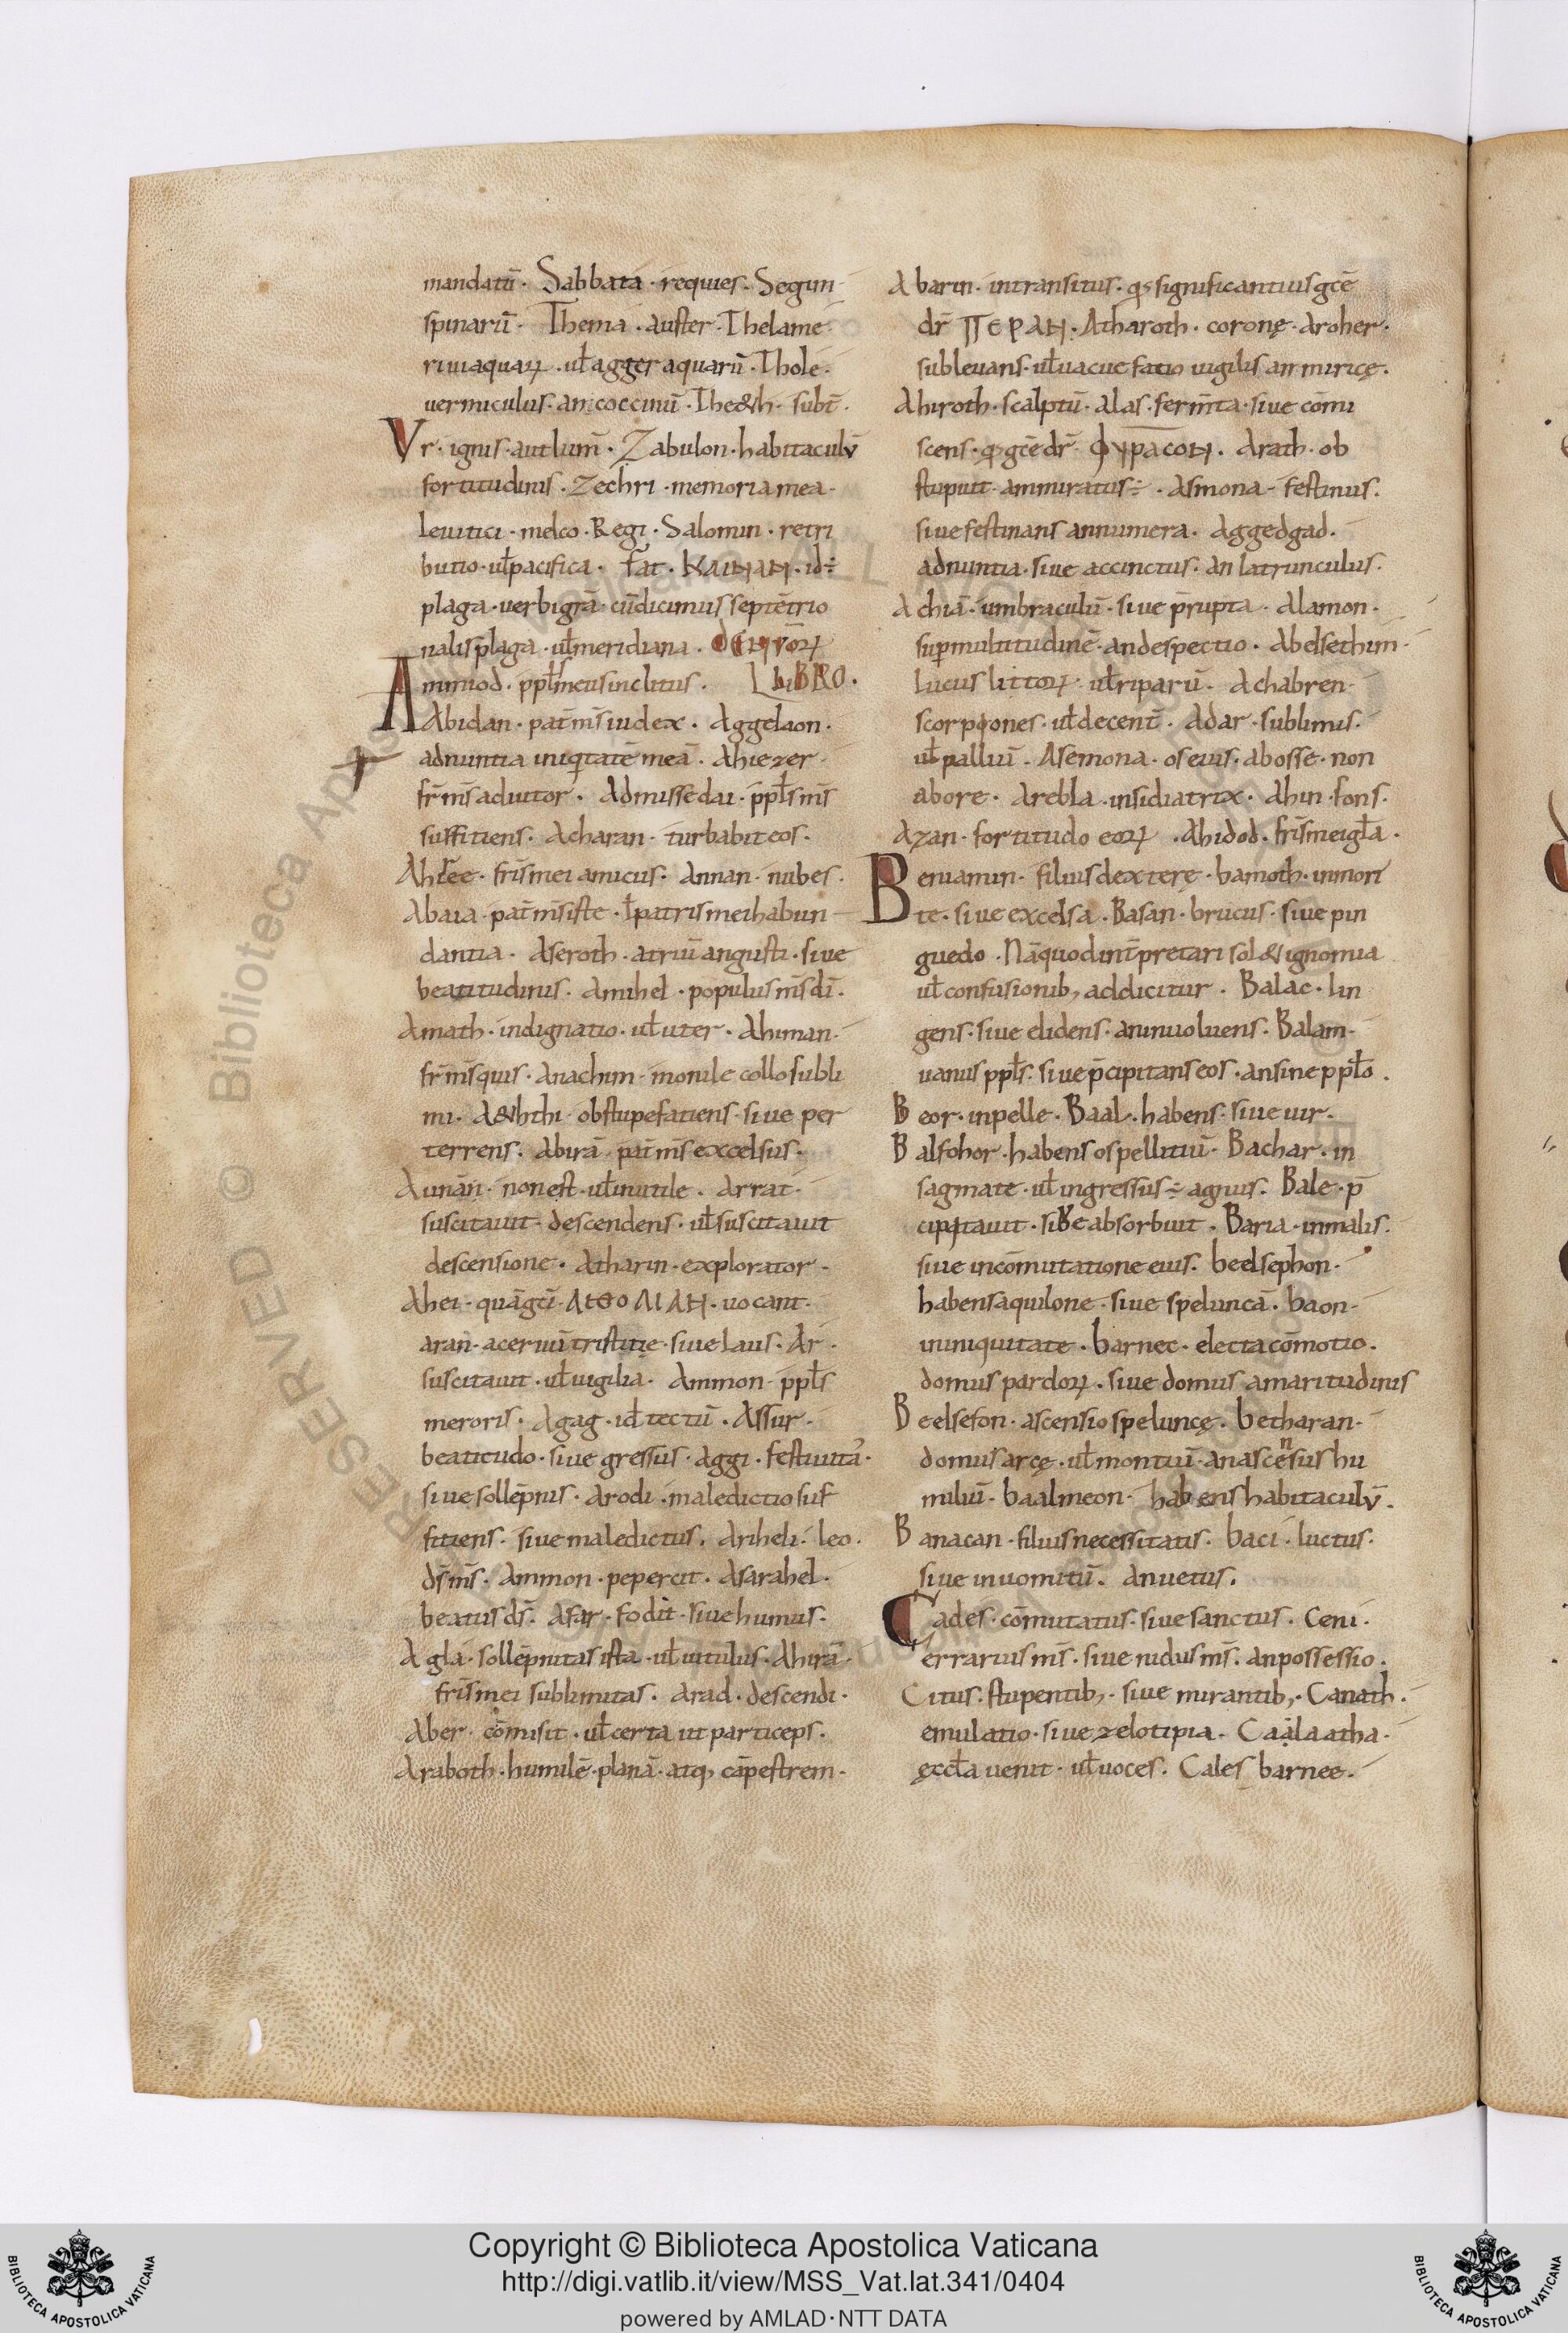 mandatū· Sabbata · requies· Segun·
spinarū· Thema · auster · Thelame·
riui aquaꝝ · uł agger aquarū · Thole·
uermiculus· an coccinū · The&h· subt̄·
Vr · ignis · aut lum̄ · Zabulon · habitaculū
fortitudinis · Zechri · memoria mea·
leuitici · melco · Regi · Salomin · retri
butio · uł pacifica · fat̄ · ΚΑΙΝΑΝ · id÷
plaga · uerbi grā · cū dicimus septētrio
nalis plaga · uł meridiana ·
ammiod · ppłs meus inclitus · LIBRO·
Abidan · pat̄ ms̄ iudex · Aggelaon·
adnuntia iniqtatē meā · Ahiezer·
fr̄ ms̄ adiutor · Admissedai · ppłs ms̄
suffitiens· Acharan· turbabit eos·
Ahiree· fr̄is mei amicus· annan· nubes·
Abaia · pat̄ ms̄ iste · ł patris mei habun
dantia · Aseroth · atriū angusti · siue
beatitudinis· Amihel · populus ms̄ dī·
Amath · indignatio · uł uter · Ahiman·
fr̄ ms̄ quis · Anachim · monile collo subli
mi· A&hthi· obstupefatiens· siue per
terrens· Abirā · pat̄ ms̄ excelsus·
Aunan · non est · uł inutile · arrat·
suscitauit · descendens · uł suscitauit
descensione · Atharin · explorator·
Ahei · quā gc̄i · ΛΙΘΟΛΙΑΝ · uocant·
aran · aceruū tristitię · siue laus· Ar·
suscitauit · uł uigilia · Ammon · ppłs
meroris · Agag · id tectū · Assur·
beatitudo · siue gressus · Aggi · festiuita·
siue sollēpnis · Arodi · maledictio suf
fitiens · siue maledictus · Ariheli · leo·
ds̄ ms̄ · Ammon · pepercit · Asarahel·
beatus ds̄ · Asar · fodit · siue humus·
Agla · sollēpnitas ista · uł uitulus · Ahirā·
fr̄is mei sublimitas · Arad · descendi·
Aber · cōmisit · uł certa ut particeps·
Araboth · humilē · planā · atq; cāpestrem·
Abarin · in transitus · qđ significantius gcē
dr̄ ΠΕΡΑΝ · Atharoth · coronę · Aroher·
subleuans · uł uacuefatio uigilis an miricę·
Ahiroth · scalptū · Alas · ferm̄ta · siue cōmi
scens · qđ gcē dr̄ ΦΥΡΑCΟΝ · Arath · ob
stupuit · ammiratus÷ · Asmona · festinus·
siue festinans annumera · Aggedgad·
adnuntia · siue accinctus · an latrunculus·
Achiā · umbraculū · siue p̄rupta · Alamon·
sup multitudinē · an despectio · Abelsethim·
lucus littoꝝ · uł riparū · Achabren·
scorpiones · uł decent̄ · Adar · sublimis·
uł palliū · Asemona · os eius · ab osse · non
ab ore · Arebla · insidiatrix · Ahin · fons·
Azan · fortitudo eoꝝ · Ahidod · fr̄is mei gła·
Beniamin · filius dexterę · bamoth · in mort̄
te · siue excelsa · Basan · brucus · siue pin
guedo · Nā quod int̄pretari sol& ignomia
uł confusionib; addicitur · Balac · lin
gens · siue elidens · an inuoluens · Balam·
uanus ppłs · siue p̄cipitans eos · an sine ppło·
Beor · in pelle · Baal · habens · siue uir·
Balfohor · habens os pellitiū · Bachar · in
sagmate · uł ingressus÷ agnus · Bale · p̄
cipitauit · siue absorbuit · Baria · in malis·
siue in cōmutatione eius · beelsephon·
habens aquilone · siue speluncā · baon·
in iniquitate · barnec · electa cōmotio·
domus pardoꝝ · siue domus amaritudinis
Beelsefon · ascensio speluncę · betharan·
domus arcę · uł montuū · an ascensus hu
miliū · baalmeon · habens habitaculū·
Banacan · filius necessitatis · baci · luctus·
siue in uomitū · an uetus·
Cades · cōmutatus · siue sanctus · Ceni·
errarius ms̄ · siue nidus ms̄ · an possessio·
Citus · stupentib; · siue mirantib; · Canath·
emulatio · siue zelotipia · Caala atha·
ęccła uenit · uł uoces · Cales barnee·
Copyright © Biblioteca Apostolica Vaticana
http://digi.vatlib.it/view/MSS_Vat.lat.341/0404
powered by AMLAD·NTT DATA